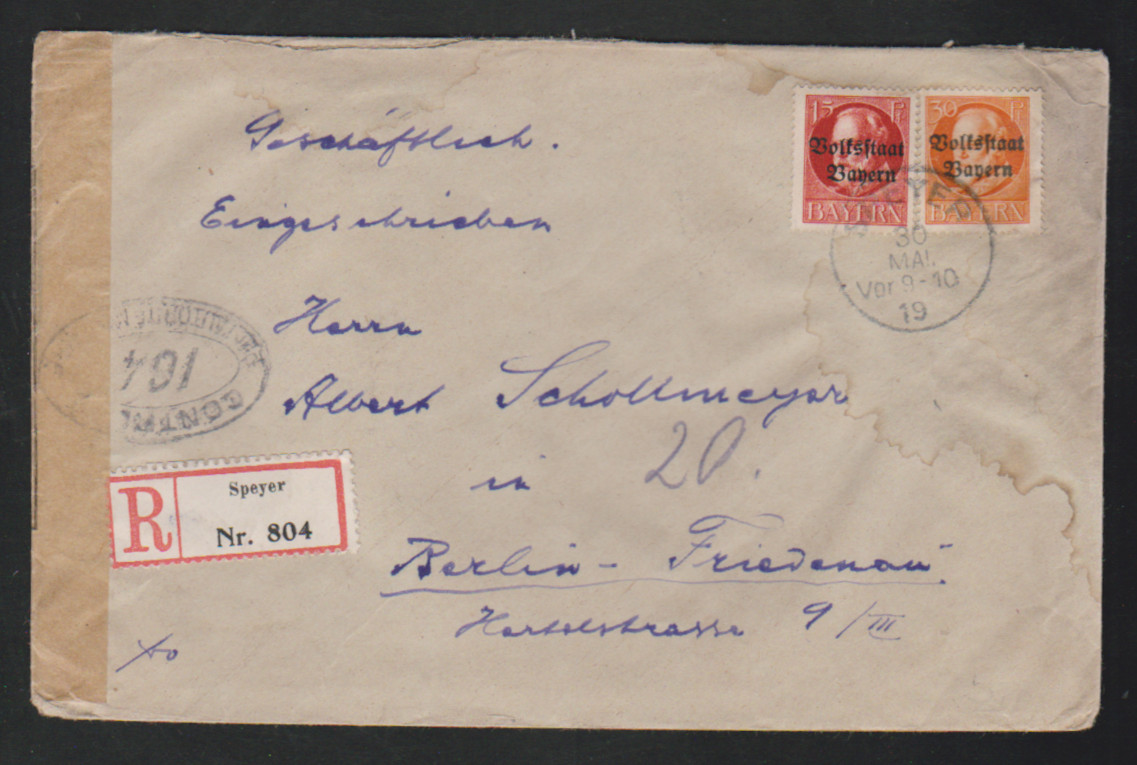 Geschäftlich.
Eingeschrieben
15 Pf
Volksstaat
Bayern
BAYERN
30 Pf
Volksstaat
Bayern
BAYERN
SPEYER
30
MAI.
Vor 9-10
19
Herrn
Albert Schollmeyer
in 20.
Berlin - Friedenau
9/III
164
CONTR
R
Speyer
Nr. 804